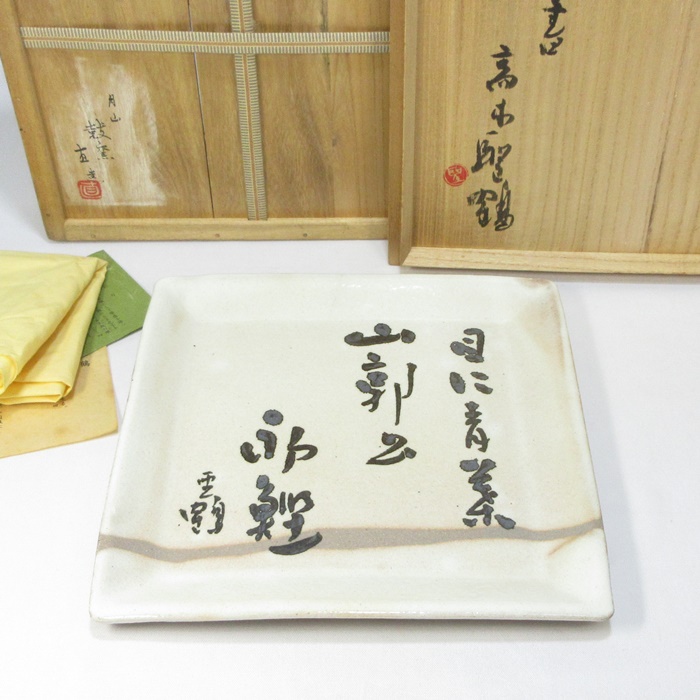 書
高木聖鶴
月山
目に青葉
山郭公
初鰹
聖鶴